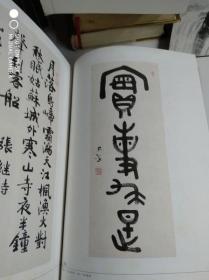 月落烏啼霜滿天江楓漁火對
愁眠姑蘇城外寒山寺夜半鐘
聲到客船
張繼詩
實事求是